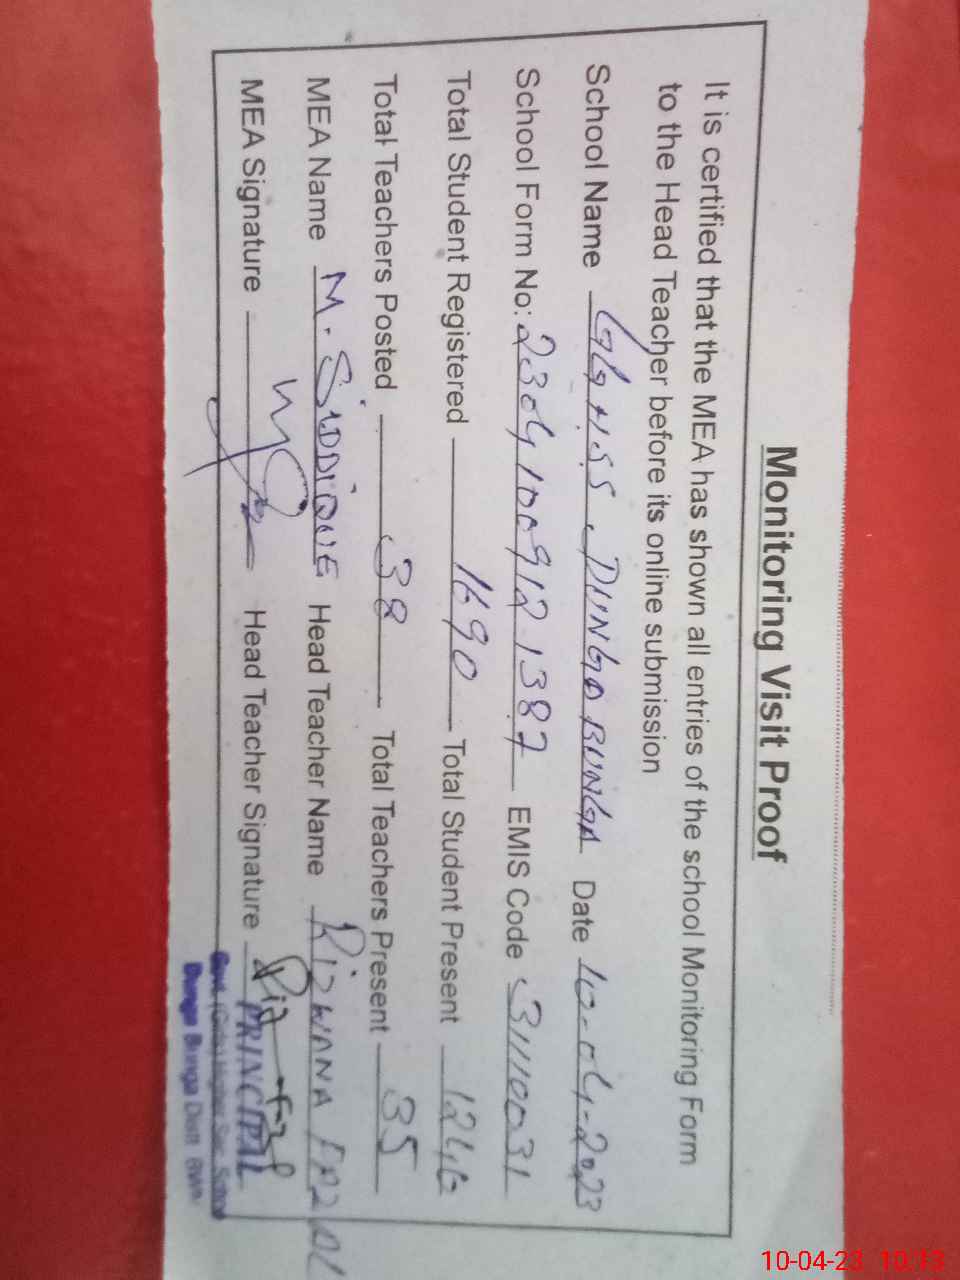 Monitoring Visit Proof
It is certified that the MEA has shown all entries of the school Monitoring Form
to the Head Teacher before its online submission
School Name GGHSS DUNGA BUNGA Date 10-04-2023
School Form No: 23041009121387 EMIS Code 31110031
Total Student Registered 1690 Total Student Present
Total Teachers Posted 38 Total Teachers Present 35
MEA Name M. SIDDIQUE Head Teacher Name RIZWANA FAZAL
MEA Signature Head Teacher Signature
PRINCIPAL
Govt. (Girls) Higher Sec. School
Dunga Bunga Distt. BWN
10-04-23 10:13